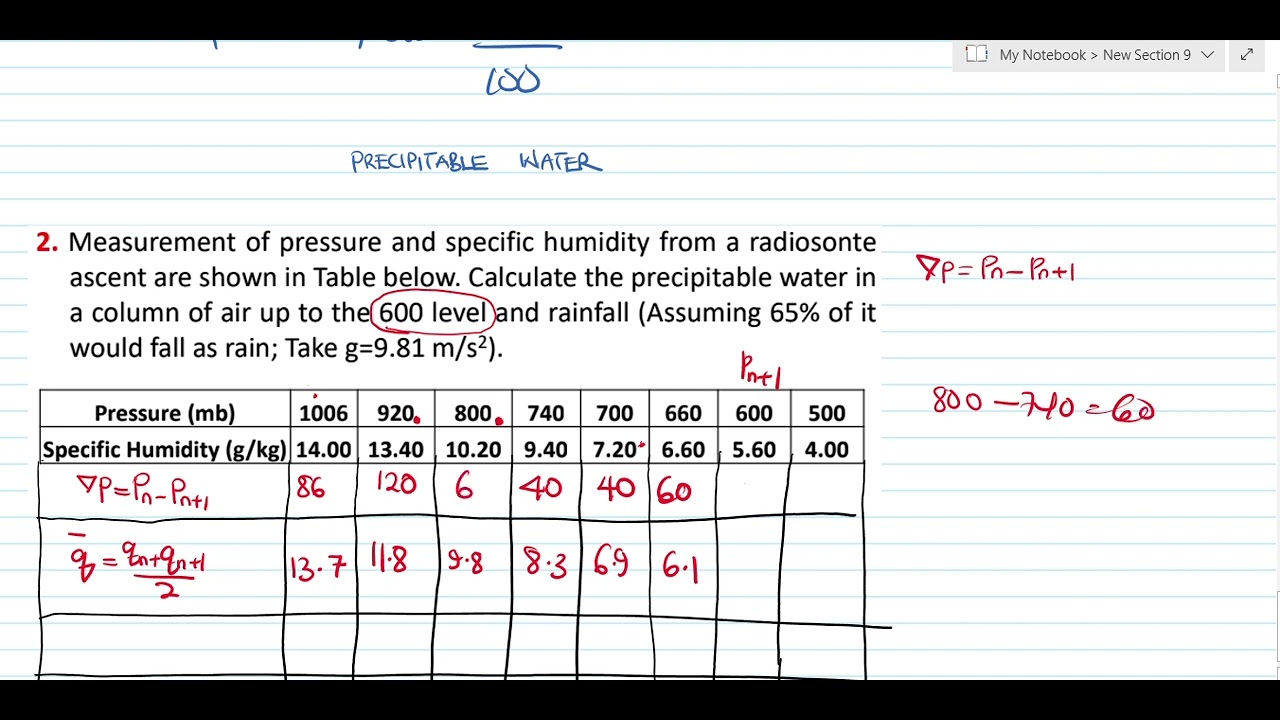 My Notebook > New Section 9
100
PRECIPITABLE WATER
2. Measurement of pressure and specific humidity from a radiosonte
ascent are shown in Table below. Calculate the precipitable water in
a column of air up to the 600 level and rainfall (Assuming 65% of it
would fall as rain; Take g=9.81 m/s²).
∇P = Pn - Pn+1
Pn+1
800 - 740 = 60
Pressure (mb) 1006 920 800 740 700 660 600 500
Specific Humidity (g/kg) 14.00 13.40 10.20 9.40 7.20 6.60 5.60 4.00
∇P = Pn - Pn+1 86 120 6 40 40 60
q̄ = qn+qn+1/2 13.7 11.8 9.8 8.3 6.9 6.1